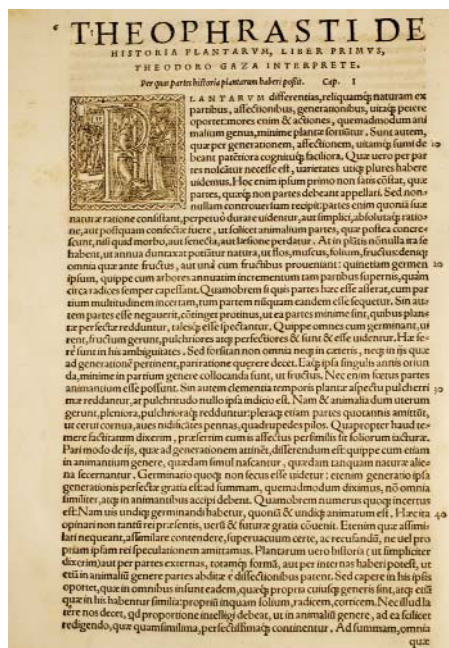 6
THEOPHRASTI DE
HISTORIA PLANTARVM, LIBER PRIMVS,
THEODORO GAZA INTERPRETE.
Per quas partes historia plantarum haberi possit. Cap. I
PLANTARVM differentias, reliquamq; naturam ex
partibus, affectionibus, generationibus, uitaq; petere
oportet: mores enim & actiones, quemadmodum ani
malium genus, minime plantæ sortiũtur. Sunt autem,
quæ per generationem, affectionem, uitamq; sumi de 10
beant patẽtiora cognituq; faciliora. Quæ uero per par
tes noscãtur necesse est, uarietates utiq; plures habere
uidemus. Hoc enim ipsum primo non satis cõstat, quæ
partes, quæq; non partes debeant appellari. Sed non-
nullam controuersiam recipit: partes enim quoniã suæ
naturæ ratione consistant, perpetuò durare uidentur, aut simplici, absolutaq; ratio-
ne, aut postquam consectæ fuere, ut scilicet animalium partes, quæ postea concre-
scunt, nisi quid morbo, aut senecta, aut læsione perdatur. At in plãtis nõnulla ita se
habent, ut annua duntaxat potiãtur natura, ut flos, muscus, folium, fructus: deniq;
omnia quæ ante fructus, aut unà cum fructibus proueniant: quinetiam germen 20
ipsum, quippe cum arbores annuatim incrementum tam partibus supernis, quàm
circa radices semper capessant. Quamobrem si quis partes hæc esse asserat, cum par
tium multitudinem incertam, tum partem nũquam eandem esse sequetur. Sin au-
tem partes esse negauerit, cõtinget protinus, ut ea partes minime sint, quibus plan-
tæ perfectæ redduntur, talesq; esse spectantur. Quippe omnes cum germinant, ui
rent, fructum gerunt, pulchriores atq; perfectiores & sunt & esse uidentur. Hæ fe-
rè sunt in his ambiguitates. Sed forsitan non omnia neq; in cæteris, neq; in ijs quæ
ad generationẽ pertinent, pari ratione quærere decet. Eaq; ipsa singulis annis oriun
da, minime in partium genere collocanda sunt, ut fructus. Nec enim fœtus partes
animantium esse possunt. Sin autem clementia temporis plantæ aspectu pulcherri 30
mæ reddantur, at pulchritudo nullo ipsa indicio est. Nam & animalia dum uterum
gerunt, pleniora, pulchrioraq; redduntur: pleraq; etiam partes quotannis amittũt,
ut cerui cornua, aues nidificãtes pennas, quadrupedes pilos. Quapropter haud te-
mere factitatum dixerim, præsertim cum is affectus persimilis sit foliorum iacturæ.
Pari modo de ijs, quæ ad generationem attinẽt, disserendum est: quippe cum etiam
in animantium genere, quædam simul nascantur, quædam tanquam naturæ alie-
na secernantur. Germinatio quoq; non secus esse uidetur: etenim generatio ipsa
generationis perfectæ gratia est: ad summam, quemadmodum diximus, nõ omnia
similiter, atq; in animantibus accipi debent. Quamobrem numerus quoq; incertus
est: Nam uis undiq; germinandi habetur, quoniã & undiq; animatum est. Hæc ita 40
opinari non tantũ rei præsentis, uerũ & futuræ gratia cõuenit. Etenim quæ assimi-
lari nequeant, assimilare contendere, superuacuum certe, ac recusandũ, ne uel pro
priam ipsam rei speculationem amittamus. Plantarum uero historia (ut simpliciter
dixerim) aut per partes externas, totamq; formã, aut per internas haberi potest, ut
etiã in animaliũ genere partes abditæ è dissectionibus patent. Sed capere in his ipsis
oportet, quæ in omnibus insunt eadem, quæq; propria cuiusq; generis sint, atq; etiã
quæ in his habentur similia: propriũ inquam folium, radicem, corticem. Nec illud la
tere nos decet, qd proportione intelligi debeat, ut in animaliũ genere, ad ea scilicet
redigendo, quæ quamsimilima, perfectissimaq; continentur. Ad summam, omnia
quæ